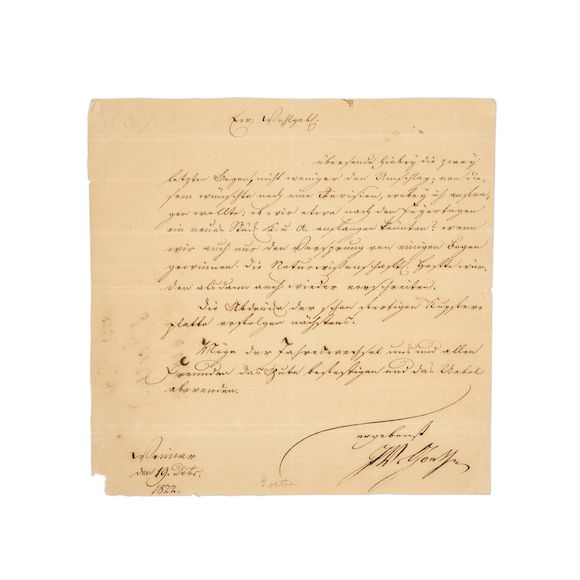 Ew. Wohlgeb.
übersende hiebey die zwey
letzten Bogen, nicht weniger den Umschlag; von die-
sem wünschte noch eine Revision, wobey ich anfra-
gen wollte: ob wir etwa nach den Feyertagen
ein neues Stück K. u. A. anfangen könnten? wenn
wir auch nur den Vorsprung von einigen Bogen
gewinnen. Die Naturwissenschaftl. Hefte wür-
den alsdann auch wieder vorschreiten.
Die Abdrücke der schon fertigen Kupfer-
platte erfolgen nächstens.
Möge der Jahreswechsel uns und allen
Freunden das Gute befestigen und das Uebel
abwenden.
ergebenst
JWvGoethe
Weimar
den 19. Debr.
1822.
Goethe